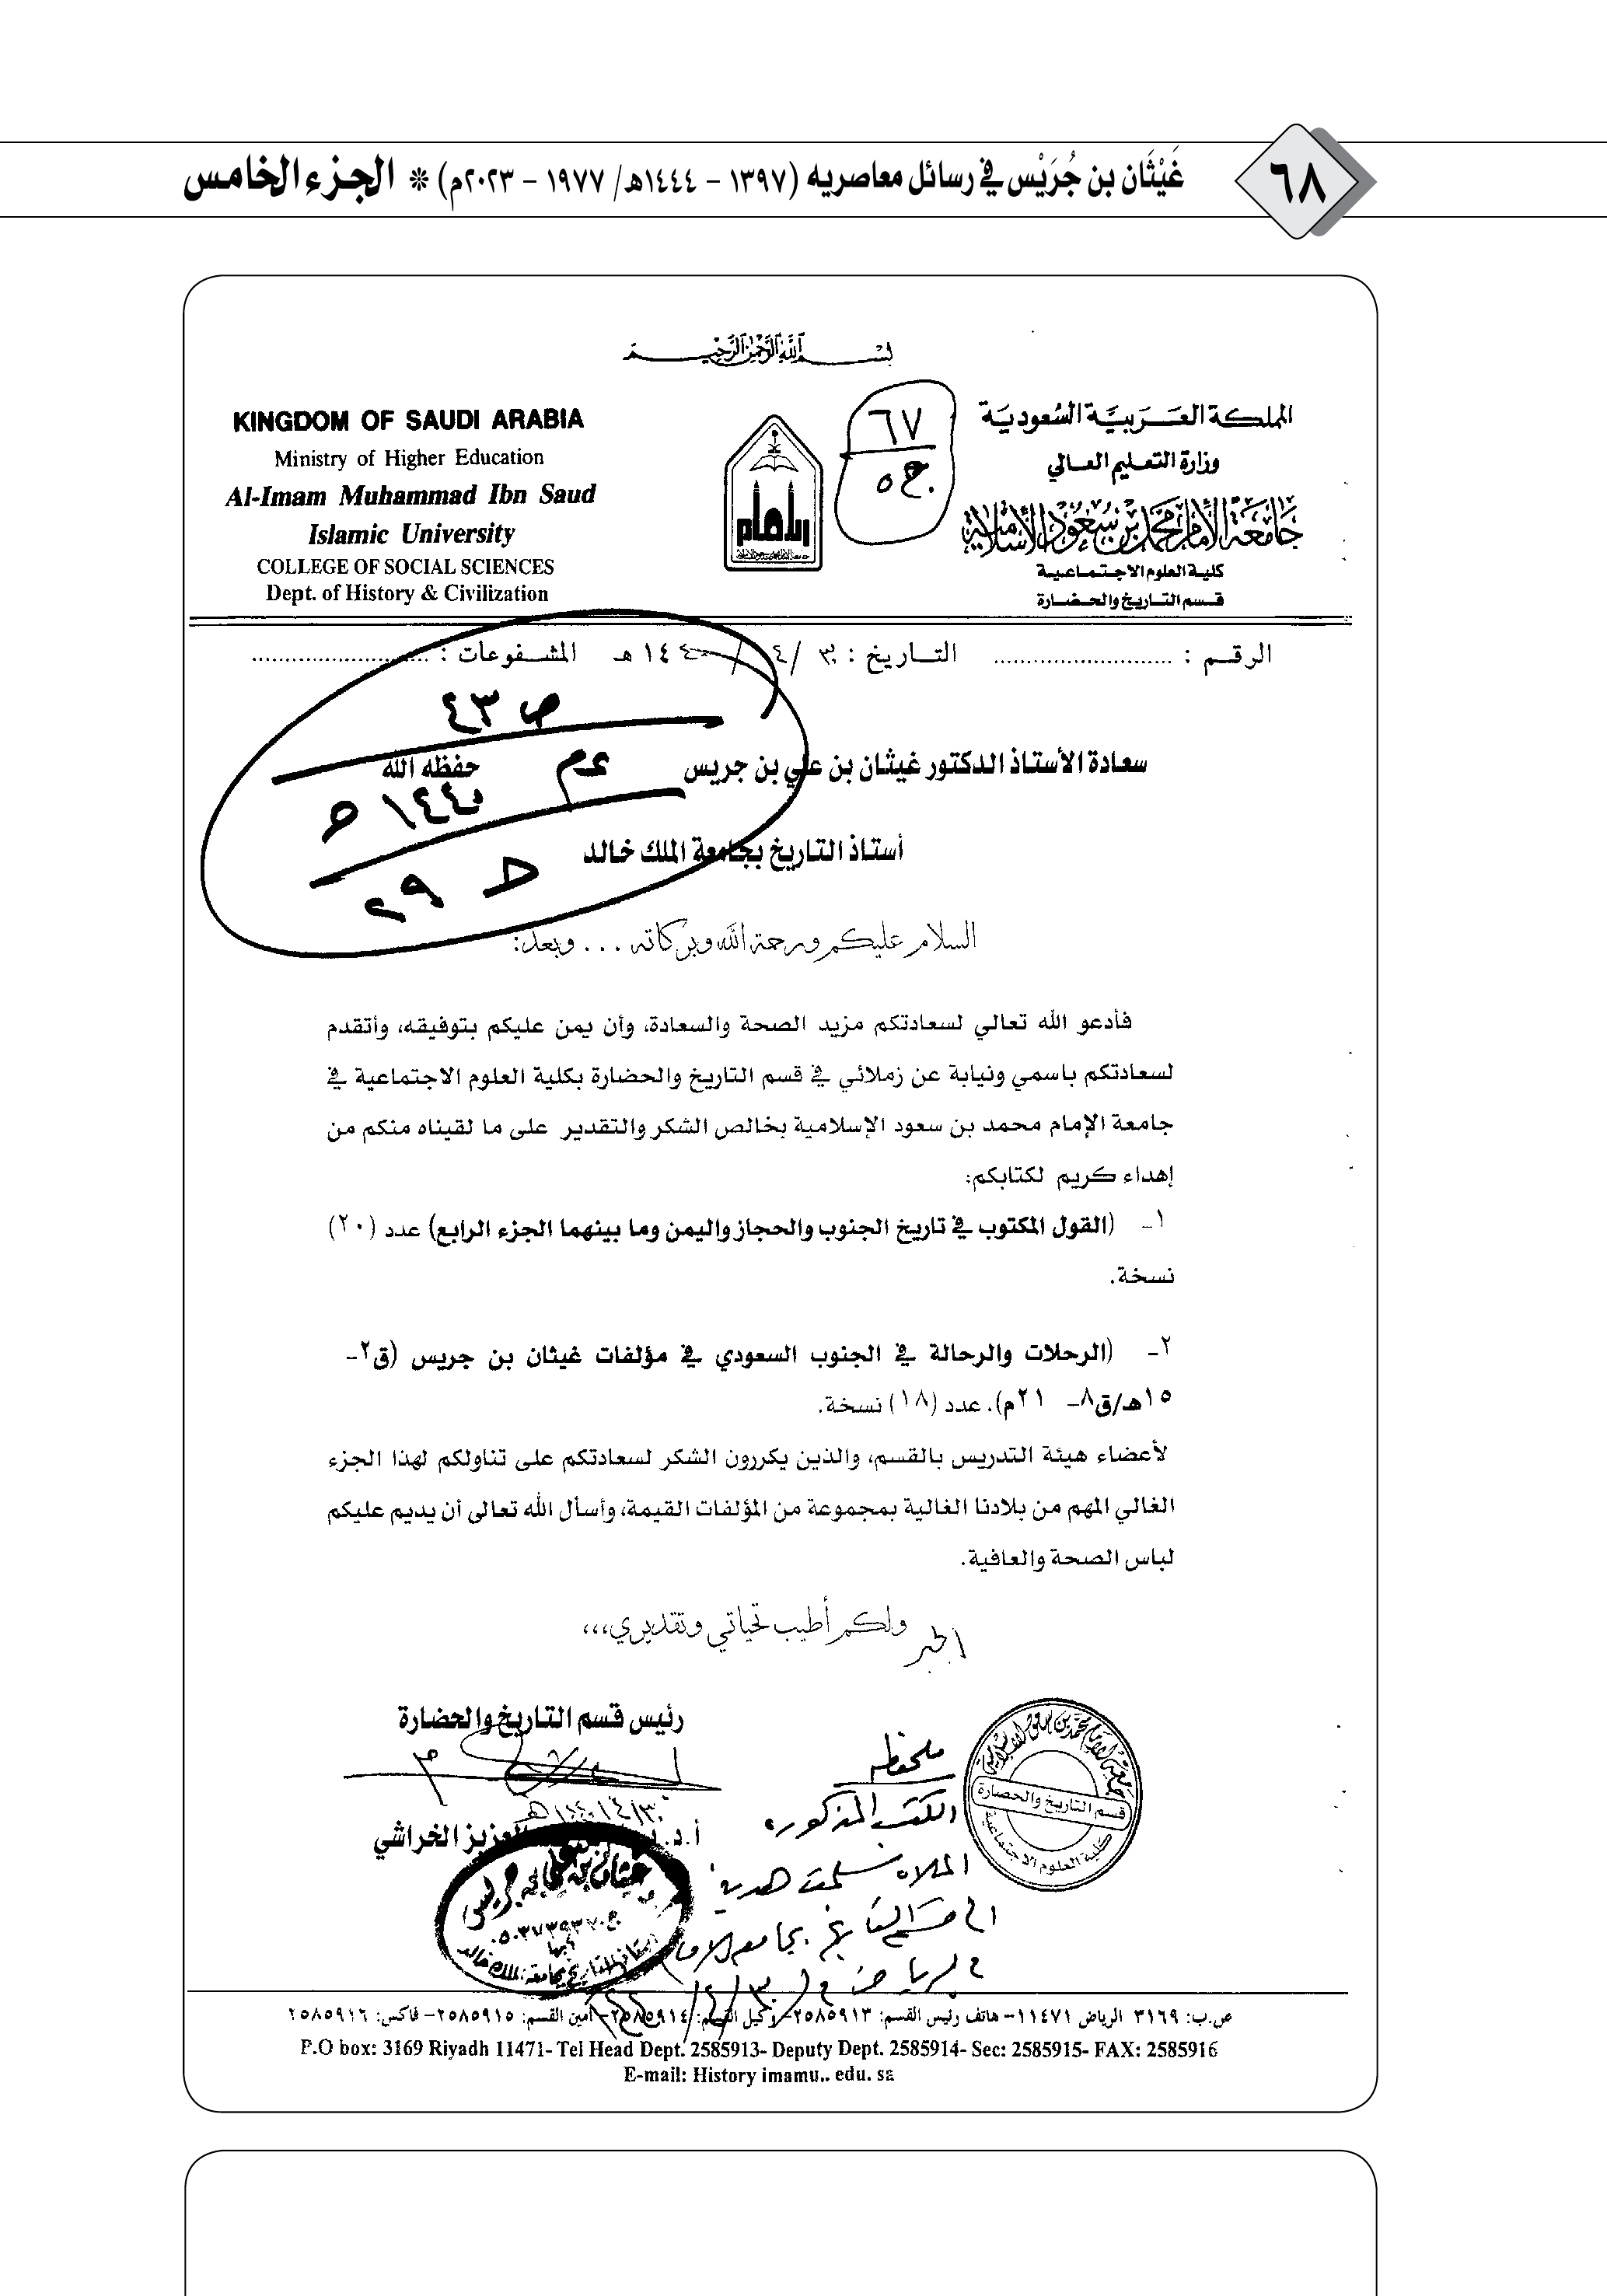 ٦٨
غَيْثَان بن جُرَيْس في رسائل معاصريه (١٣٩٧ - ١٤٤٤هـ/ ١٩٧٧ - ٢٠٢٣م) * الجزء الخامس
بسم الله الرحمن الرحيم
المملكة العربية السعودية
وزارة التعليم العالي
جامعة الإمام محمد بن سعود الإسلامية
كلية العلوم الاجتماعية
قسم التاريخ والحضارة
٦٧
ج ٥
KINGDOM OF SAUDI ARABIA
Ministry of Higher Education
Al-Imam Muhammad Ibn Saud
Islamic University
COLLEGE OF SOCIAL SCIENCES
Dept. of History & Civilization
الرقم : .......................... التاريخ : ٣٠ / ٤ / ١٤٤٠ هـ المشفوعات : ..........................
ص ٤٣
١٤٤٠ هـ
٢٩
سعادة الأستاذ الدكتور غيثان بن علي بن جريس حفظه الله
أستاذ التاريخ بجامعة الملك خالد
السلام عليكم ورحمة الله وبركاته ... وبعد:
فأدعو الله تعالي لسعادتكم مزيد الصحة والسعادة، وأن يمن عليكم بتوفيقه، وأتقدم
لسعادتكم باسمي ونيابة عن زملائي في قسم التاريخ والحضارة بكلية العلوم الاجتماعية في
جامعة الإمام محمد بن سعود الإسلامية بخالص الشكر والتقدير على ما لقيناه منكم من
إهداء كريم لكتابكم:
١- (القول المكتوب في تاريخ الجنوب والحجاز واليمن وما بينهما الجزء الرابع) عدد (٢٠)
نسخة.
٢- (الرحلات والرحالة في الجنوب السعودي في مؤلفات غيثان بن جريس (ق٢-
١٥هـ/ق٨- ٢١م). عدد (١٨) نسخة.
لأعضاء هيئة التدريس بالقسم، والذين يكررون الشكر لسعادتكم على تناولكم لهذا الجزء
الغالي المهم من بلادنا الغالية بمجموعة من المؤلفات القيمة، وأسأل الله تعالى أن يديم عليكم
لباس الصحة والعافية.
ولكم أطيب تحياتي وتقديري،،،
رئيس قسم التاريخ والحضارة
١٤٤٠/٤/٣٠هـ
أ.د. العزيز الخراشي
قسم التاريخ والحضارة
كلية العلوم الاجتماعية
ملحوظة
الكتب المذكورة
أعلاه سلمت هدية
إلى قسم التاريخ بجامعة الإمام
في الرياض في ٣٠/٤/
غيثان بن علي بن جريس
ج. ٠٥٠٣٧٣٩٣٧٠
أبها
أستاذ التاريخ بجامعة الملك خالد
ص.ب: ٣١٦٩ الرياض ١١٤٧١- هاتف رئيس القسم: ٢٥٨٥٩١٣- وكيل القسم: ٢٥٨٥٩١٤- أمين القسم: ٢٥٨٥٩١٥- فاكس: ٢٥٨٥٩١٦
P.O box: 3169 Riyadh 11471- Tel Head Dept. 2585913- Deputy Dept. 2585914- Sec: 2585915- FAX: 2585916
E-mail: History imamu.. edu. sa